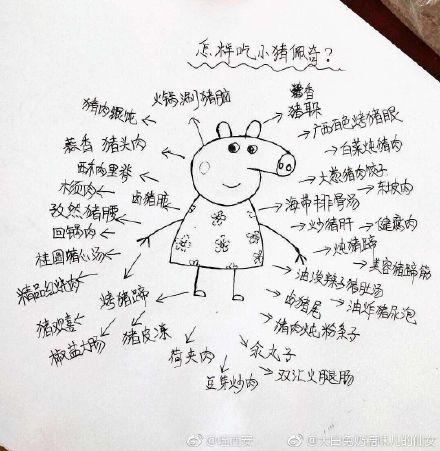 怎样吃小猪佩奇?
猪肉馄饨
火锅涮猪脑
酱香
猪尿
广西百色烤猪眼
白菜炖猪肉
蒜香 猪头肉
西柿肉里脊
木须肉
卤猪脸
大葱猪肉饺子
东坡肉
海带排骨汤
孜然猪腰
炒猪肝
健康肉
回锅肉
炖猪蹄
桂圆猪心汤
美容猪蹄筋
油泼辣子猪肚汤
烤猪蹄
卤猪尾
油炸猪尿泡
猪欢喜
猪皮冻
猪肉炖粉条子
椒盐大肠
荷夹肉
汆丸子
豆芽炒肉
双汇火腿肠
@大白兔奶糖味儿的仙女